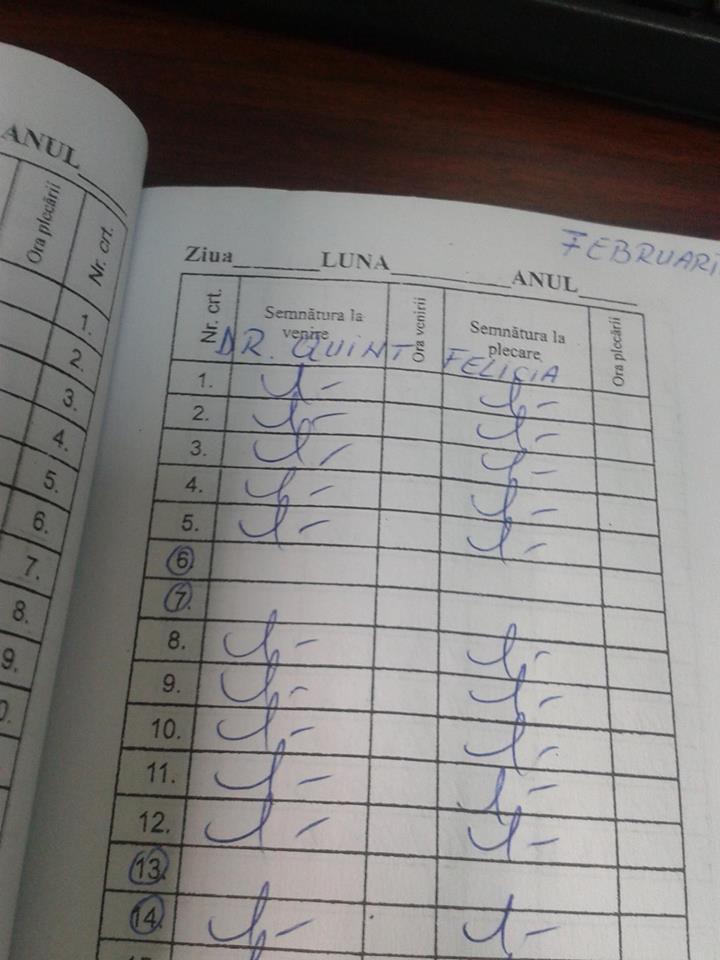 ANUL
Ora plecării
Nr. crt.
1.
2.
3.
4.
5.
6.
7.
8.
9.
FEBRUARI
Ziua LUNA ANUL
Nr. crt. Semnătura la venire Ora venirii Semnătura la plecare Ora plecării
DR. QUINT FELICIA
1.
2.
3.
4.
5.
6
7.
8.
9.
10.
11.
12.
13.
14.